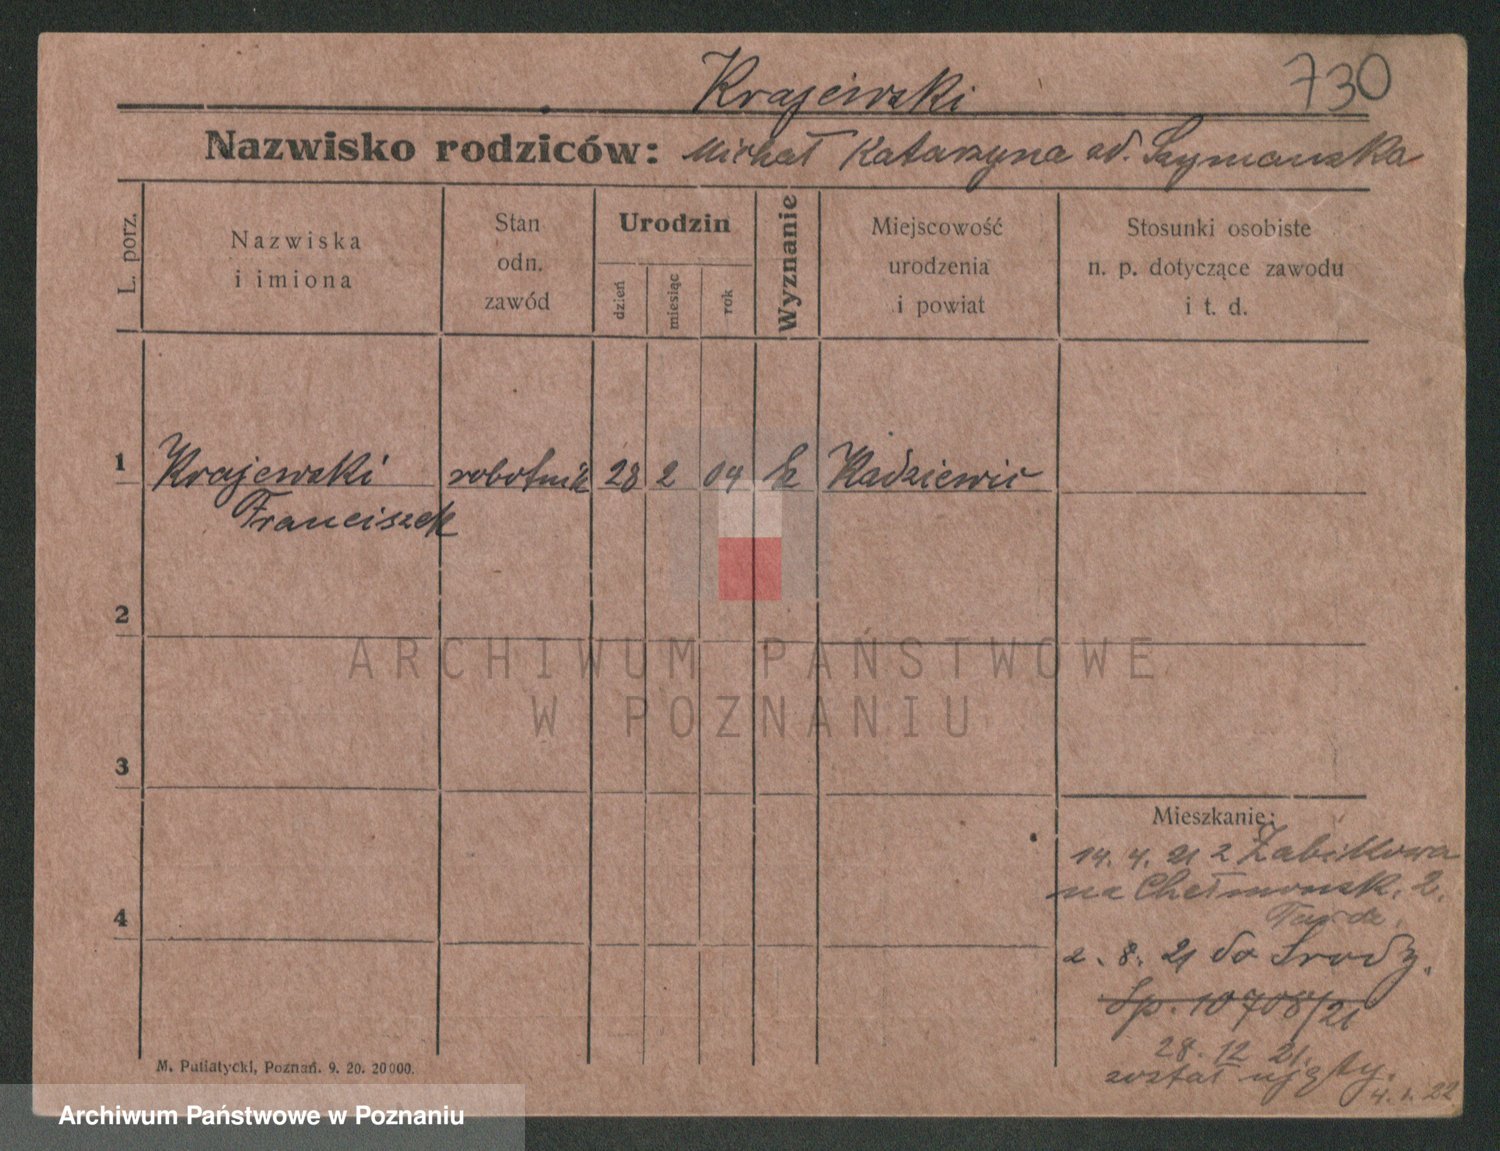 Krajewski
730
Nazwisko rodziców: Michał Katarzyna od. Szymanska
L. porz.
Nazwiska
i imiona
Stan
odn.
zawód
Urodzin
dzień
miesiąc
rok
Wyznanie
Miejscowość
urodzenia
i powiat
Stosunki osobiste
n. p. dotyczące zawodu
i t. d.
1 Krajewski robotnik 28 2 04 k Radziewic
Franciszek
2
ARCHIWUM PAŃSTWOWE
W POZNANIU
3
Mieszkanie:
14. 4. 21 z Żabikowa
na Chełmonsk. 2.
4
2. 8. 21 do Środy.
Sp. 10708/21
28. 12 21.
został ujęty.
4. 1. 22
M. Putiatycki, Poznań. 9. 20. 20000.
Archiwum Państwowe w Poznaniu